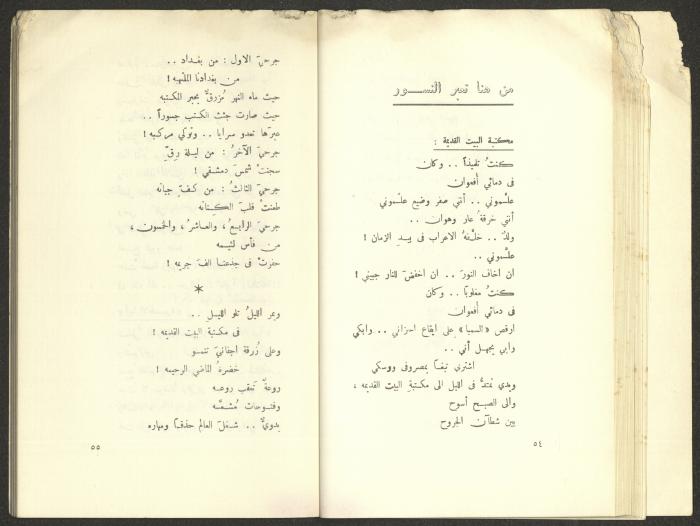 من هنا تعبر النسور
مكتبة البيت القديمة :
كنتُ تلميذاً . . وكان
في دمائي أفعوان
علّموني . . أنني صفر وضيع علّموني
أنني خرقةُ عار وهوان . .
ولدٌ . . خلّفهُ الاعراب في يدِ الزمان !
علّموني . .
ان أخاف النورَ . . ان اخفضَ للنار جبيني !
كنتُ مغلوباً . . وكان
في دمائي أفعوان
ارقص «السمبا» على ايقاع احزاني . . وابكي
وابي يجهل أني . .
اشتري تبغاً بمصروفي وويسكي
ويدي تمتدُّ في الليل الى مكتبةِ البيت القديمه ،
والى الصبح أسوح
بين شطآن الجروح
٥٤
جرحيَ الاول : من بغداد . .
من بغدادنا الملتهبه !
حيث ماء النهر مُزرقٌ بحبر المكتبه
حيث صارت جثث الكتب جسوراً . .
عبرَها تعدو سرايا . . وتوكي مركبه !
جرحيَ الآخرُ : من ليلة رقٍّ
سجنتْ شمسَ دمشقي !
جرحيَ الثالثُ : من كفِّ جبانه
طعنتْ قلبَ الكنانه
جرحيَ الرابعُ ، والعاشرُ ، والخمسون ،
من فأس لئيمه
حفرتْ في جذعنا الفَ جريمه !
*
ويمر الليلُ تلو الليلِ . .
في مكتبة البيت القديمه !
وعلى زُرقة اجفانيَ تنمو
خضرةُ الماضي الرحيمه !
روعةٌ تعقب روعه
وفتوحات مُشعّه
بدويٌّ . . شغلَ العالم حذقاً ومهاره
٥٥